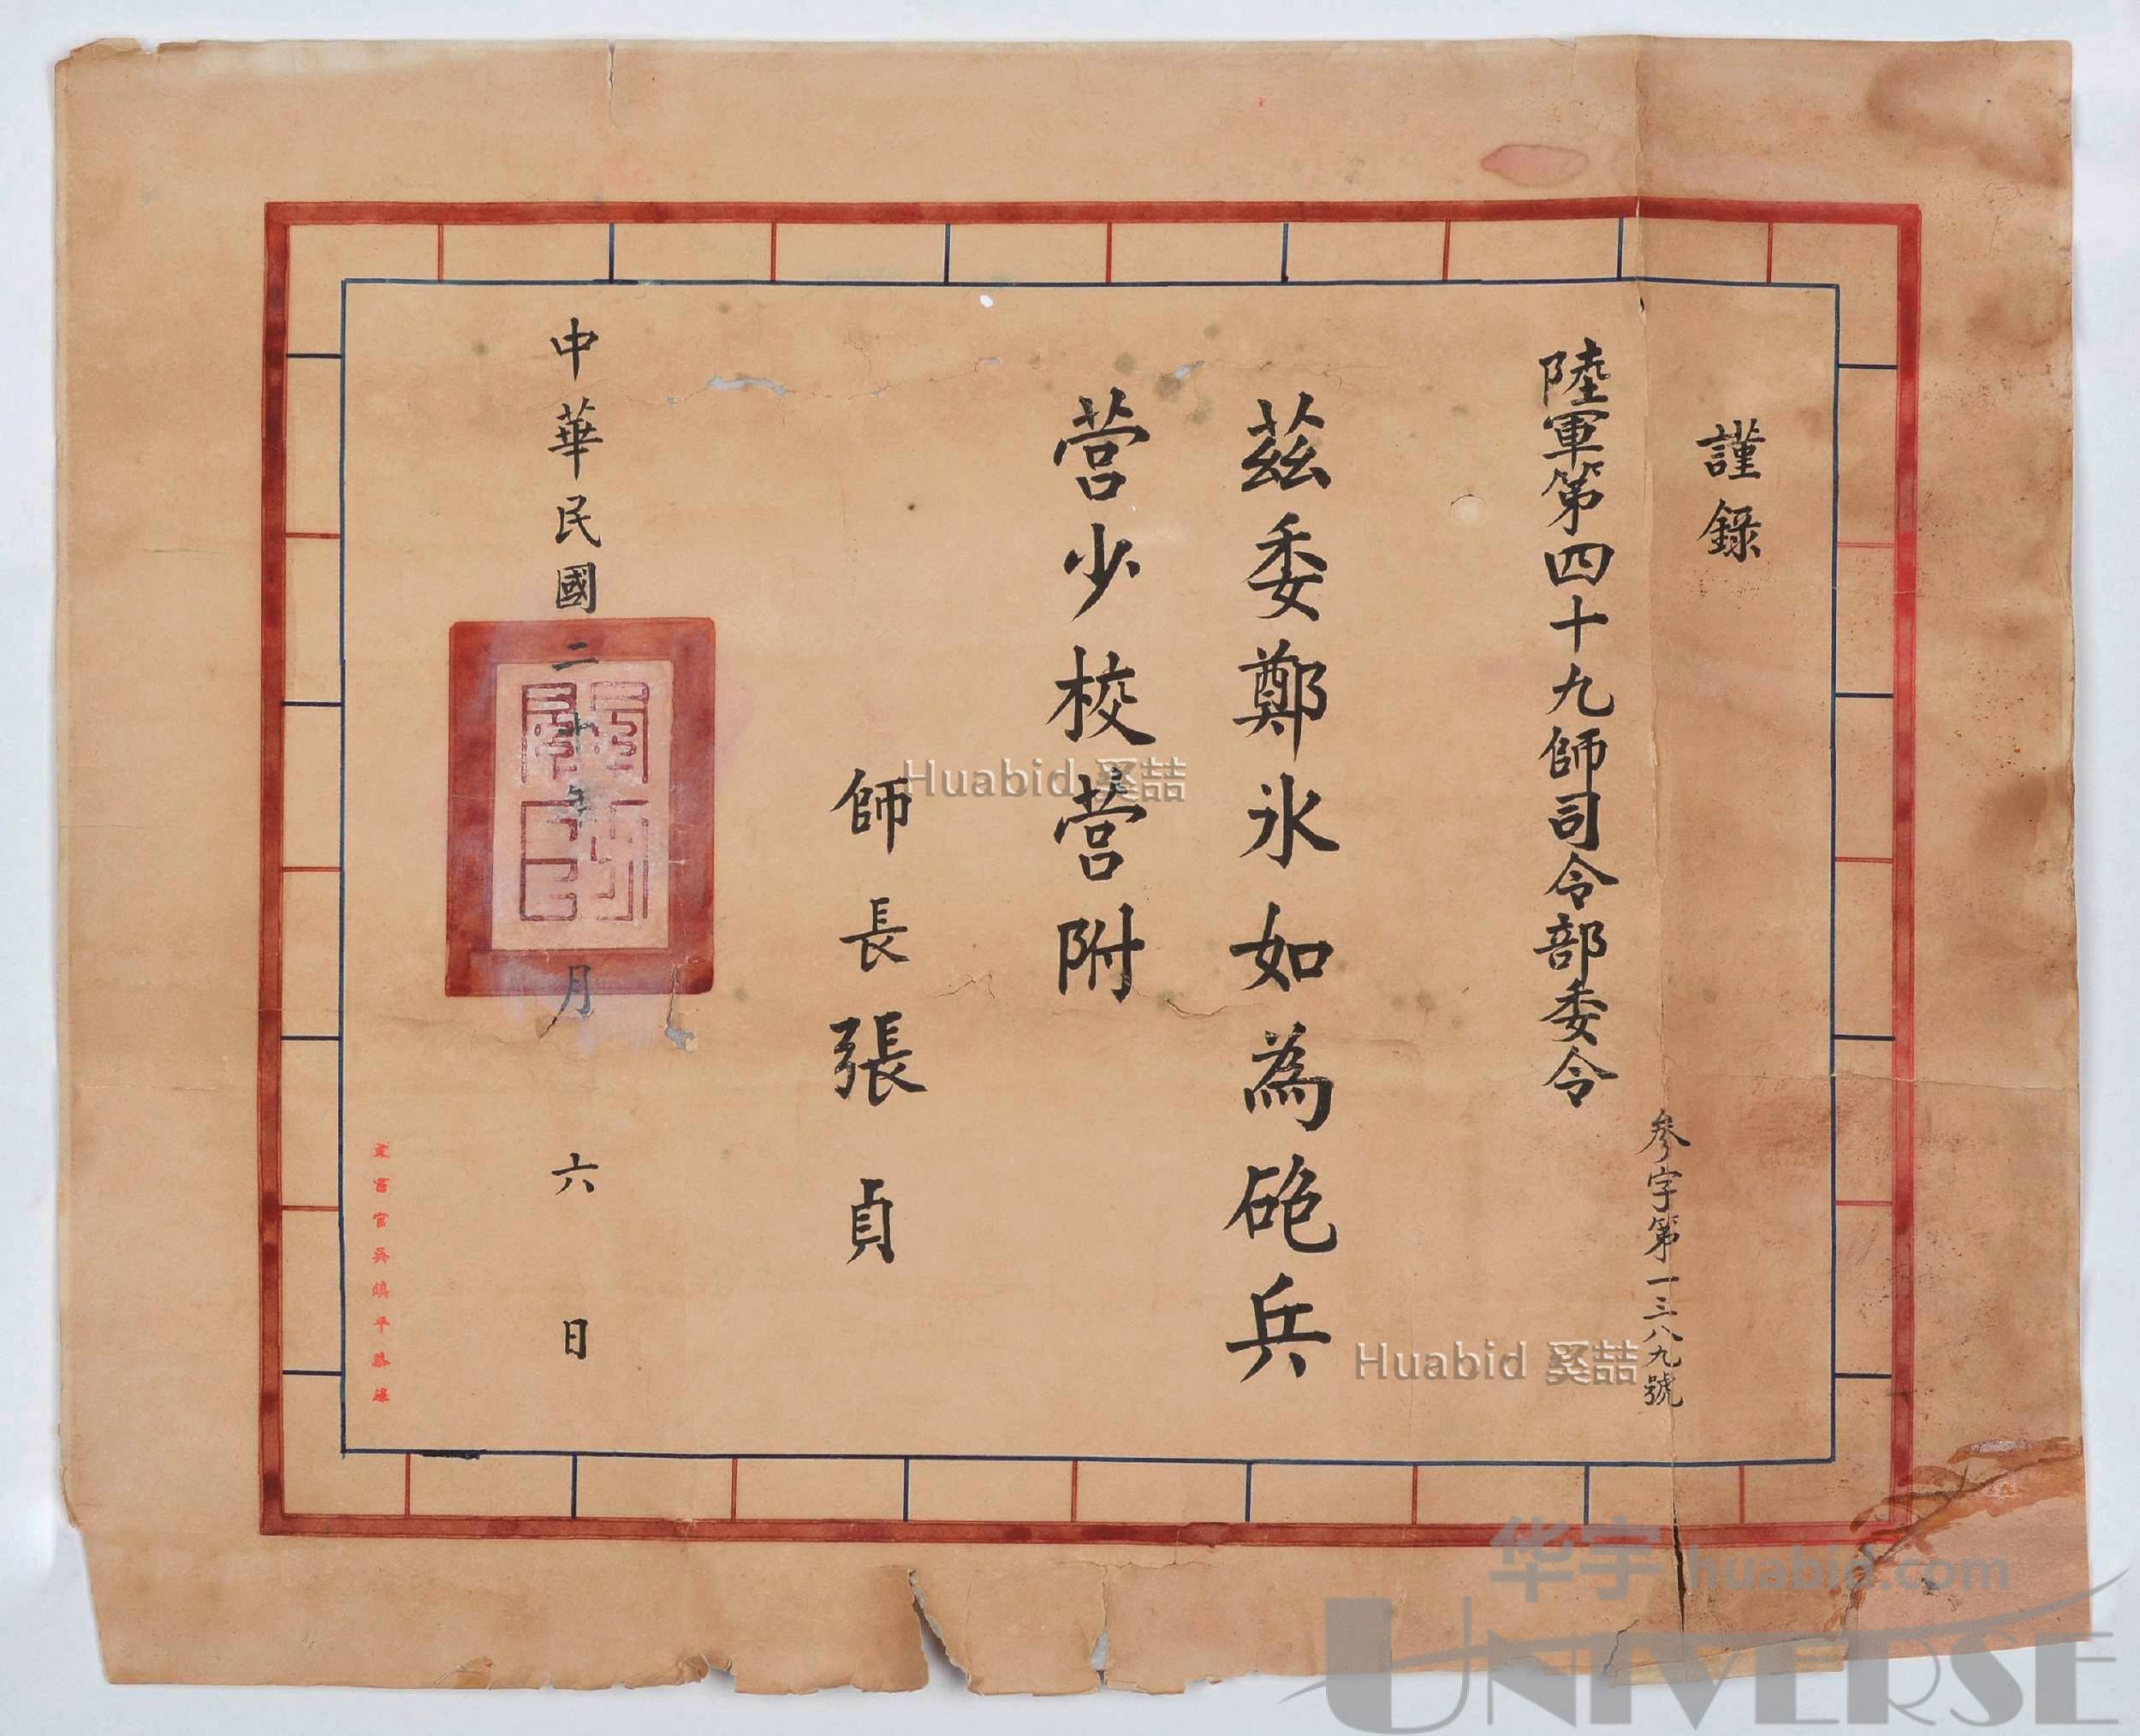 謹錄
陸軍第四十九師司令部委令
參字第一三八九號
茲委鄭氷如為砲兵
營少校營附
師長張貞
中華民國二十年 月六日
文書官吳鎮平恭繕
Huabid 奚喆
Huabid 奚喆
华宇 huabid.com
UNIVERSE